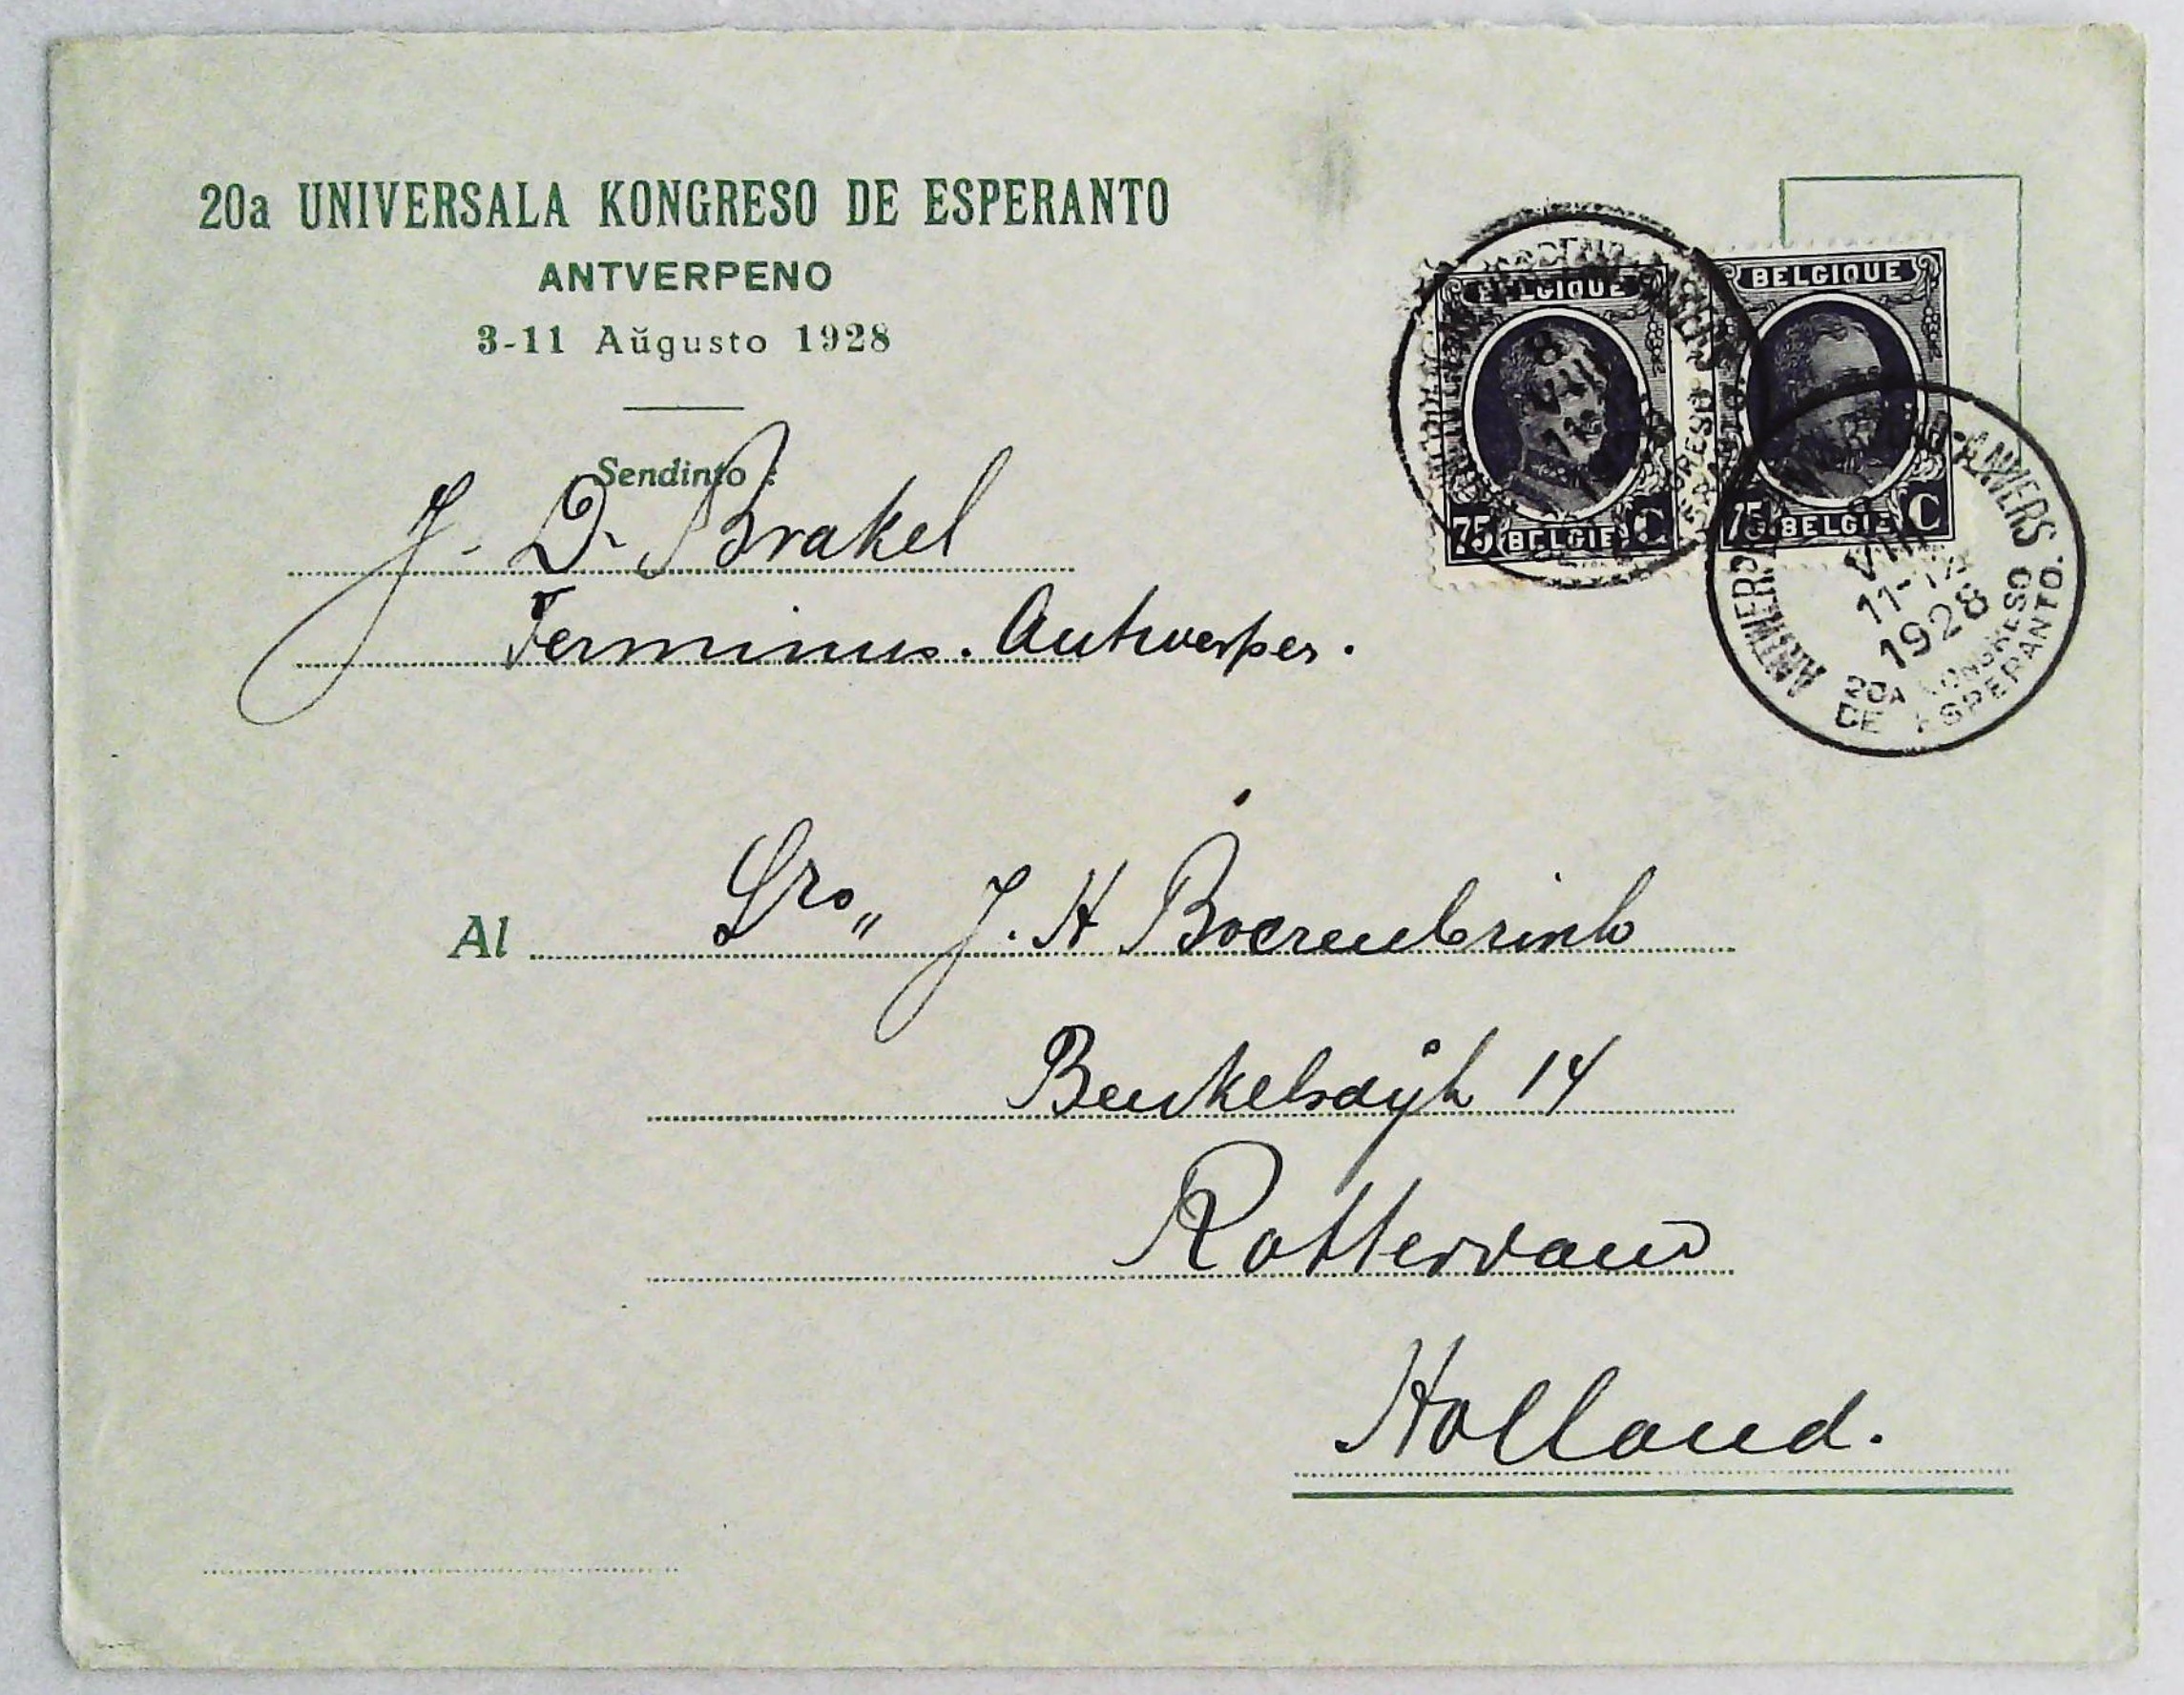 20a UNIVERSALA KONGRESO DE ESPERANTO
ANTVERPENO
3-11 Aŭgusto 1928
Sendinto :
J. D. Brakel
Terminus. Antwerpen.
BELGIQUE
75 BELGIË C
BELGIQUE
75 BELGIË C
ANTWERPEN ANVERS
VIII
11-12
1928
20A KONGRESO
DE ESPERANTO.
Al Sro,, J. H Boerenbrink
Beukelsdijk 14
Rotterdam
Holland.